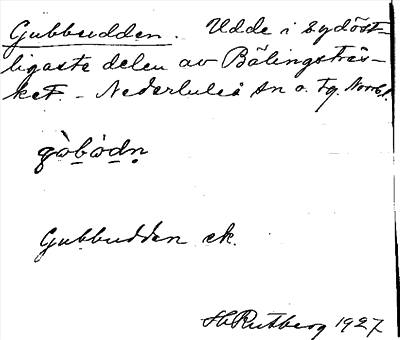 Gubbudden. Udde i sydöst-
ligaste delen av Bälingsträs-
ket. - Nederluleå sn o. tg. Norrb.
gòb̲òd̲ṇ
Gubbudden ek.
H Rutberg 1927